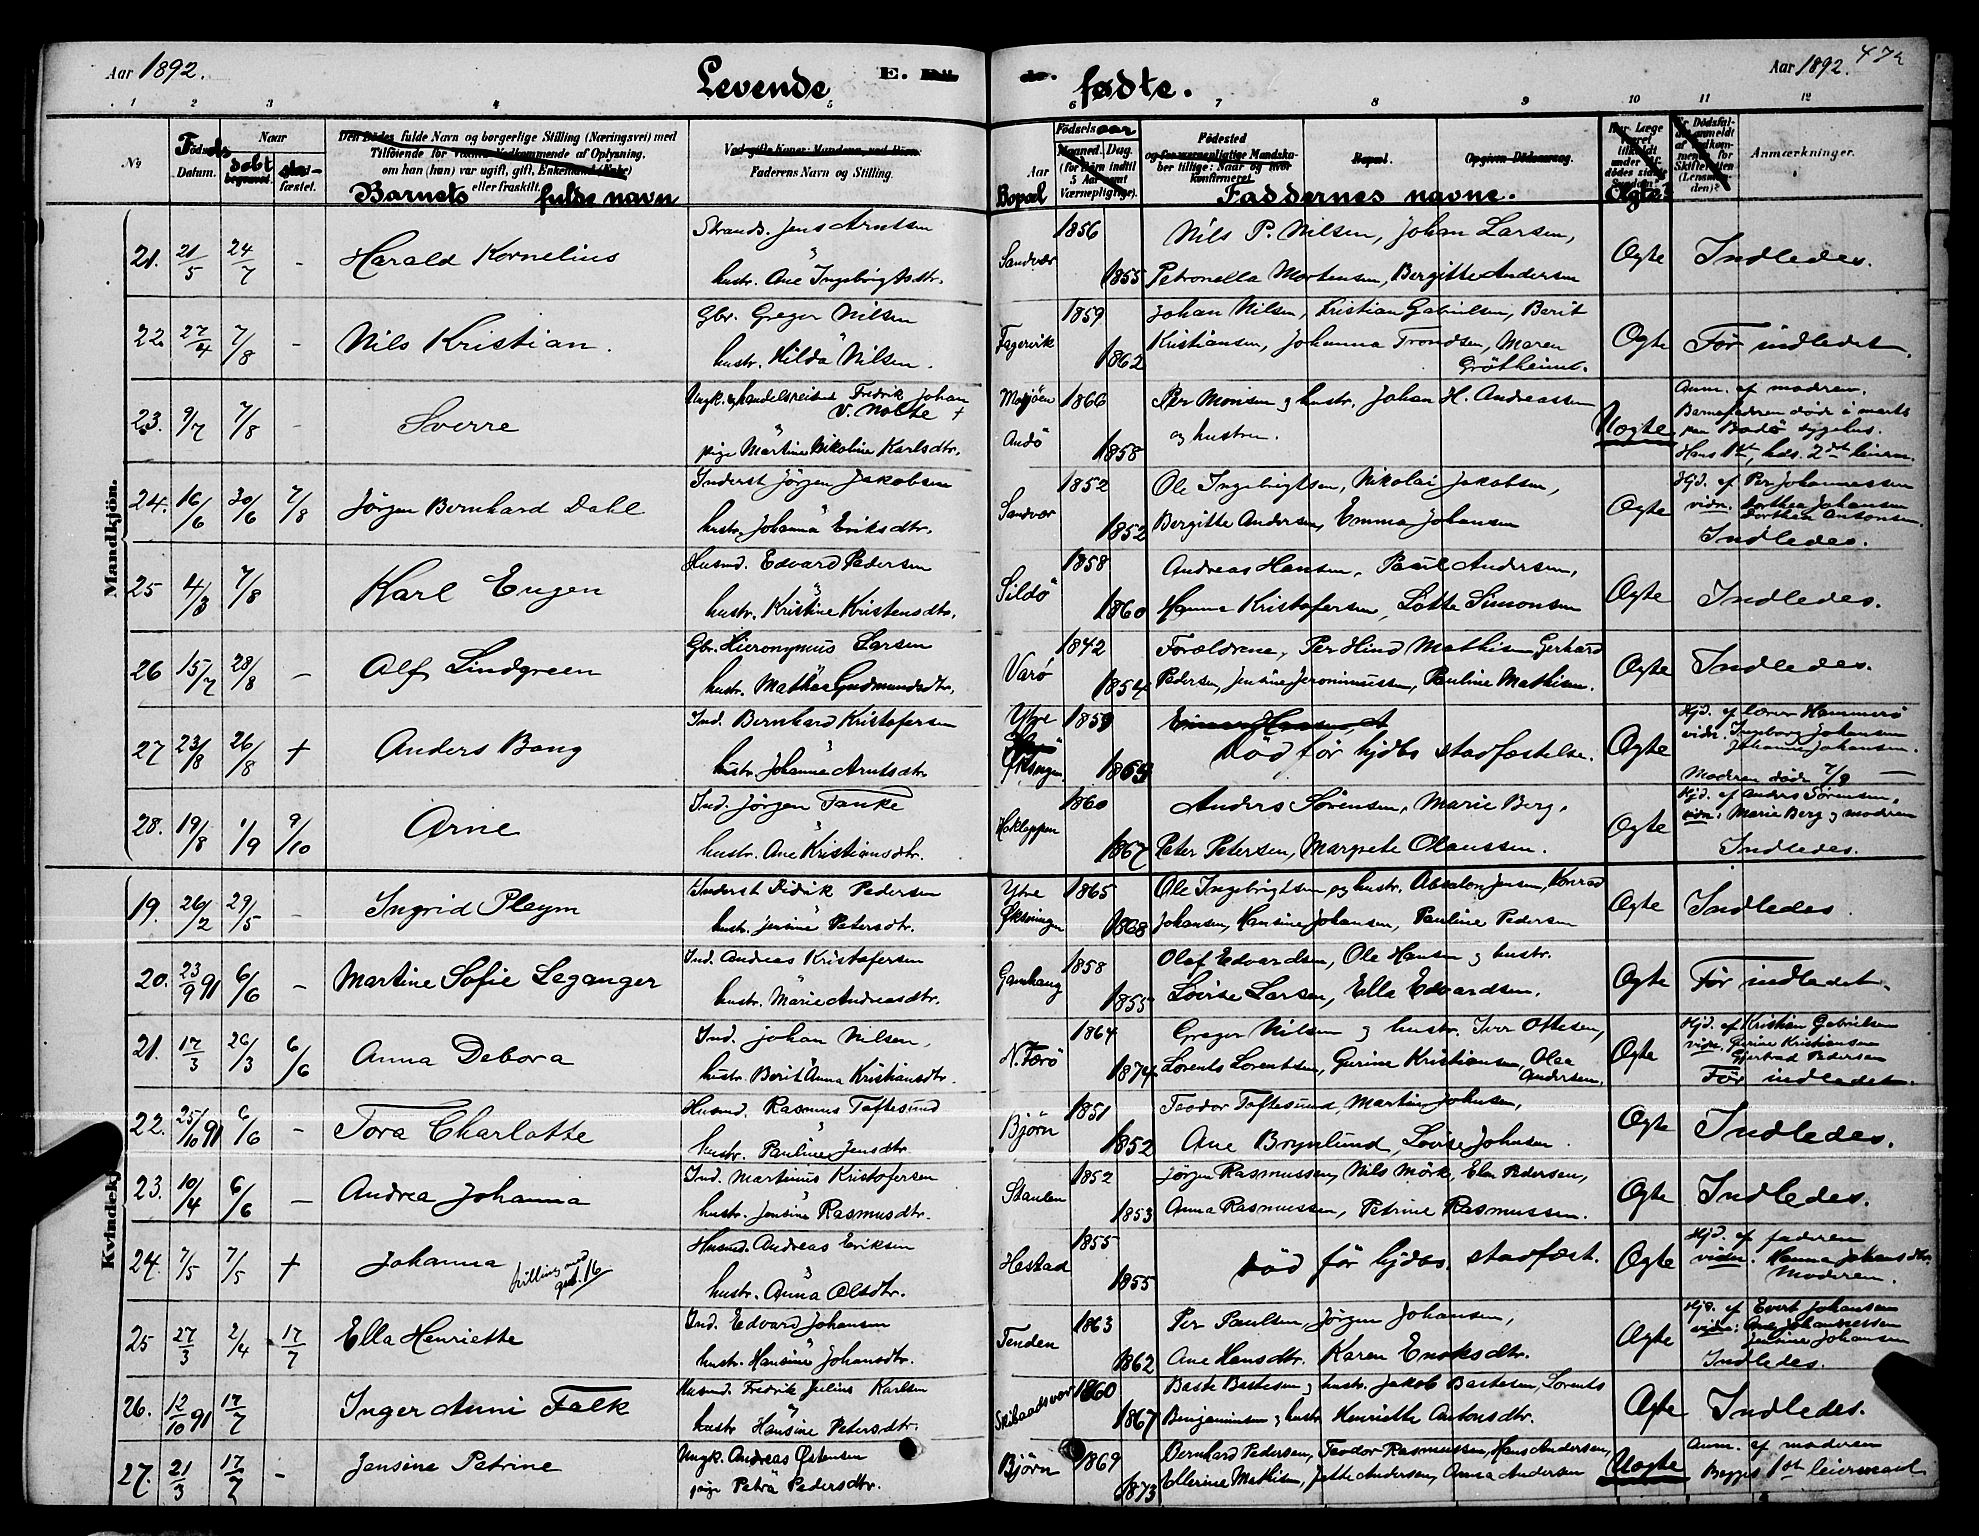 Aar 1892.
Levende
E.
fødte.
Aar 1892.
1 2 3 4 5 6 7 8 9 10 11 12
No.
Føds
Datum.
Naar
døbt
stad-
fæstet.
Den Dødes fulde Navn og borgerlige Stilling (Næringsvei) med
Tilføiende for Vedkommende af Oplysning,
om han (hun) var ugift, gift, Enkemand (Enke)
eller fraskilt.
Barnets fulde navn
Ved gifte Koner: Mandens, ved Børn:
Faderens Navn og Stilling.
Aar
Bopæl
Fødselsaar
Maaned. Dag.
(for Børn indtil
5 Aar samt
Værnepligtige).
Fødested
og for værnepligtige Mandska-
ber tillige: Naar og hvor
konfirmeret
Bopæl.
Opgiven Dødsaarsag.
Faddernes navne.
Ægte?
Anmærkninger.
Mandkjön.
21. 21/5 24/7 - Harald Kornelius
Strands. Jens Arntsen
hustr. Ane Ingebrigtsdtr.
Sandvær 1856 1855
Nils P. Nilsen, Johan Larsen,
Petronella Mortensen, Bergitte Andersen
Ægte Indledes.
22 27/4 7/8 - Nils Kristian.
Gbr. Greger Nilsen
hustr. Hilda Nilsen.
Fagervik 1859 1862
Johan Nilsen, Kristian Gabrielsen, Berit
Kristiansen, Johanna Trondsen, Maren
Grötheim.
Ægte Før indledet.
23. 9/7 7/8 - Sverre
Ungk. og handelsreisend Fredrik Johan
V. Nolte +
pige Martine Nikoline Karlsdtr.
Mosjöen Andö 1866 1858
Per Monsen og hustr. Johan H. Andreassen
og hustren.
Uægte
Anm. af moderen.
Barnefaderen døde i marts
paa Bodø sygehus.
Hans 1st, hds. 2det leierm.
24. 16/6 30/6 7/8 Jörgen Bernhard Dahl
Inderst Jörgen Jakobsen
hustr. Johanna Eriksdtr.
Sandvær 1852 1852
Ole Ingebrigtsen, Nikolai Jakobsen,
Bergitte Andersen, Emma Johansen
Ægte
Hjd. af Per Johannessen
vidn. Dorthea Johansen
Dorthea Antonsen.
Indledes.
25 4/3 7/8 Karl Eugen
Husmd. Edvard Pedersen
hustr. Kristine Kristensdtr.
Sildö 1858 1860
Andreas Hansen, Paul Andersen,
Hanna Kristofersen, Lotte Simonsen
Ægte Indledes.
26 15/7 28/8 - Alf Lindgreen
Gbr. Hieronymus Larsen
hustr. Mathea Gudmundsdtr.
Varö 1842 1854
Forældrene, Per Hind Mathisen Gerhard
Pedersen, Jensine Jeronimussen, Pauline Mathisen.
Ægte Indledes.
27 23/8 26/8 + Anders Bang
Ind. Bernhard Kristofersen
hustr. Johanna Arntsdtr.
Ytre Øksningen 1859 1865
Død før hjdbs stadfæstelse.
Ægte
Hjd. af lærer Hammerö
vidn. Ingeborg Johansen
Johanna Johansen.
Moderen døde 7/9
28. 19/8 1/9 9/10 Arne
Ind. Jörgen Tanke
hustr. Ane Kristiansdtr.
1860 1867
Anders Sörensen, Marie Berg,
Peter Petersen, Margrete Olaussen.
Ægte
Hjd. af Anders Sörensen,
vidn. Marie Berg og moderen
Indledes.
Kvindekj.
19. 26/2 29/5 - Ingrid Pleym
Inderst Didrik Pedersen
hustr. Jensine Petersdtr.
Ytre Øksningen 1865 1868
Ole Ingebrigtsen og hustr. Absalon Jensen, Konrad
Johansen, Hansine Johansen, Pauline Pedersen
Ægte Indledes
20. 23/9 91 6/6 - Martine Sofie Leganger
Ind. Andreas Kristofersen
hustr. Marie Andreasdtr.
1858 1855
Olaf Edvardsen, Ole Hansen og hustr.
Lovise Larsen, Ella Edvardsen.
Ægte Før indledet.
21. 17/3 26/3 6/6 Anna Debora
Ind. Johan Nilsen,
hustr. Berit Anna Kristiansdtr.
N. Færö 1864 1874
Greger Nilsen og hustr. Iver Ottesen,
Lorents Lorentsen, Gurine Kristiansen, Olea
Andersen.
Ægte
Hjd. af Kristian Gabrielsen
vidn. Gurine Kristiansen
Gjertrud Pedersen
Før indledet.
22. 25/10 91 6/6 - Tora Charlotte
Husmd. Rasmus Toftesund
hustr. Pauline Jensdtr.
Bjørn 1851 1852
Teodor Toftesund, Martin Johnsen,
Ane Brynlund, Lovise Johnsen.
Ægte Indledes.
23. 10/4 6/6 - Andrea Johanna
Ind. Martinus Kristofersen
hustr. Jensine Rasmusdtr.
Staulen 1852 1853
Jörgen Rasmussen, Nils Mörk, Elen Pedersen,
Anna Rasmussen, Petrine Rasmussen.
Ægte Indledes.
24. 7/5 7/5 + Johanna tvilling med gut. 16
Husmd. Andreas Eriksen
hustr. Anna Olsdtr.
Hestad 1855 1855
Død før hjdbs. stadfæst.
Ægte
Hjd. af faderen
vidn. Hanna Johansdtr.
Moderen.
25 27/3 2/4 17/7 Ella Henriette
Ind. Edvard Johansen
hustr. Hansine Johansdtr.
Tenden 1863 1862
Per Paulsen, Jörgen Johansen,
Ane Hansdtr. Karen Enoksdtr.
Ægte
Hjd. af Evert Johansen
vidn: Ane Johannessen
Jensine Johansen
Indledes.
26. 12/10 91 17/7 Inger Anni Falk
Husmd. Fredrik Julius Karlsen
hustr. Hansine Petersdtr.
Skibaadsvær 1860 1867
Baste Bastesen og hustr. Jakob Bastesen, Lorents
Benjaminsen og hustr. Henriette Antonsdtr.
Ægte Indledes.
27. 21/3 17/7 - Jensine Petrine
Ungk. Andreas Østensen
pige Petra Pedersdtr.
Bjørn 1869 1873
Bernhard Pedersen, Teodor Rasmussen, Hans Andersen,
Ellerine Mathisen, Jette Andersen, Anna Andersen
Uægte
Anm. af moderen
Begges 1st leiermaal